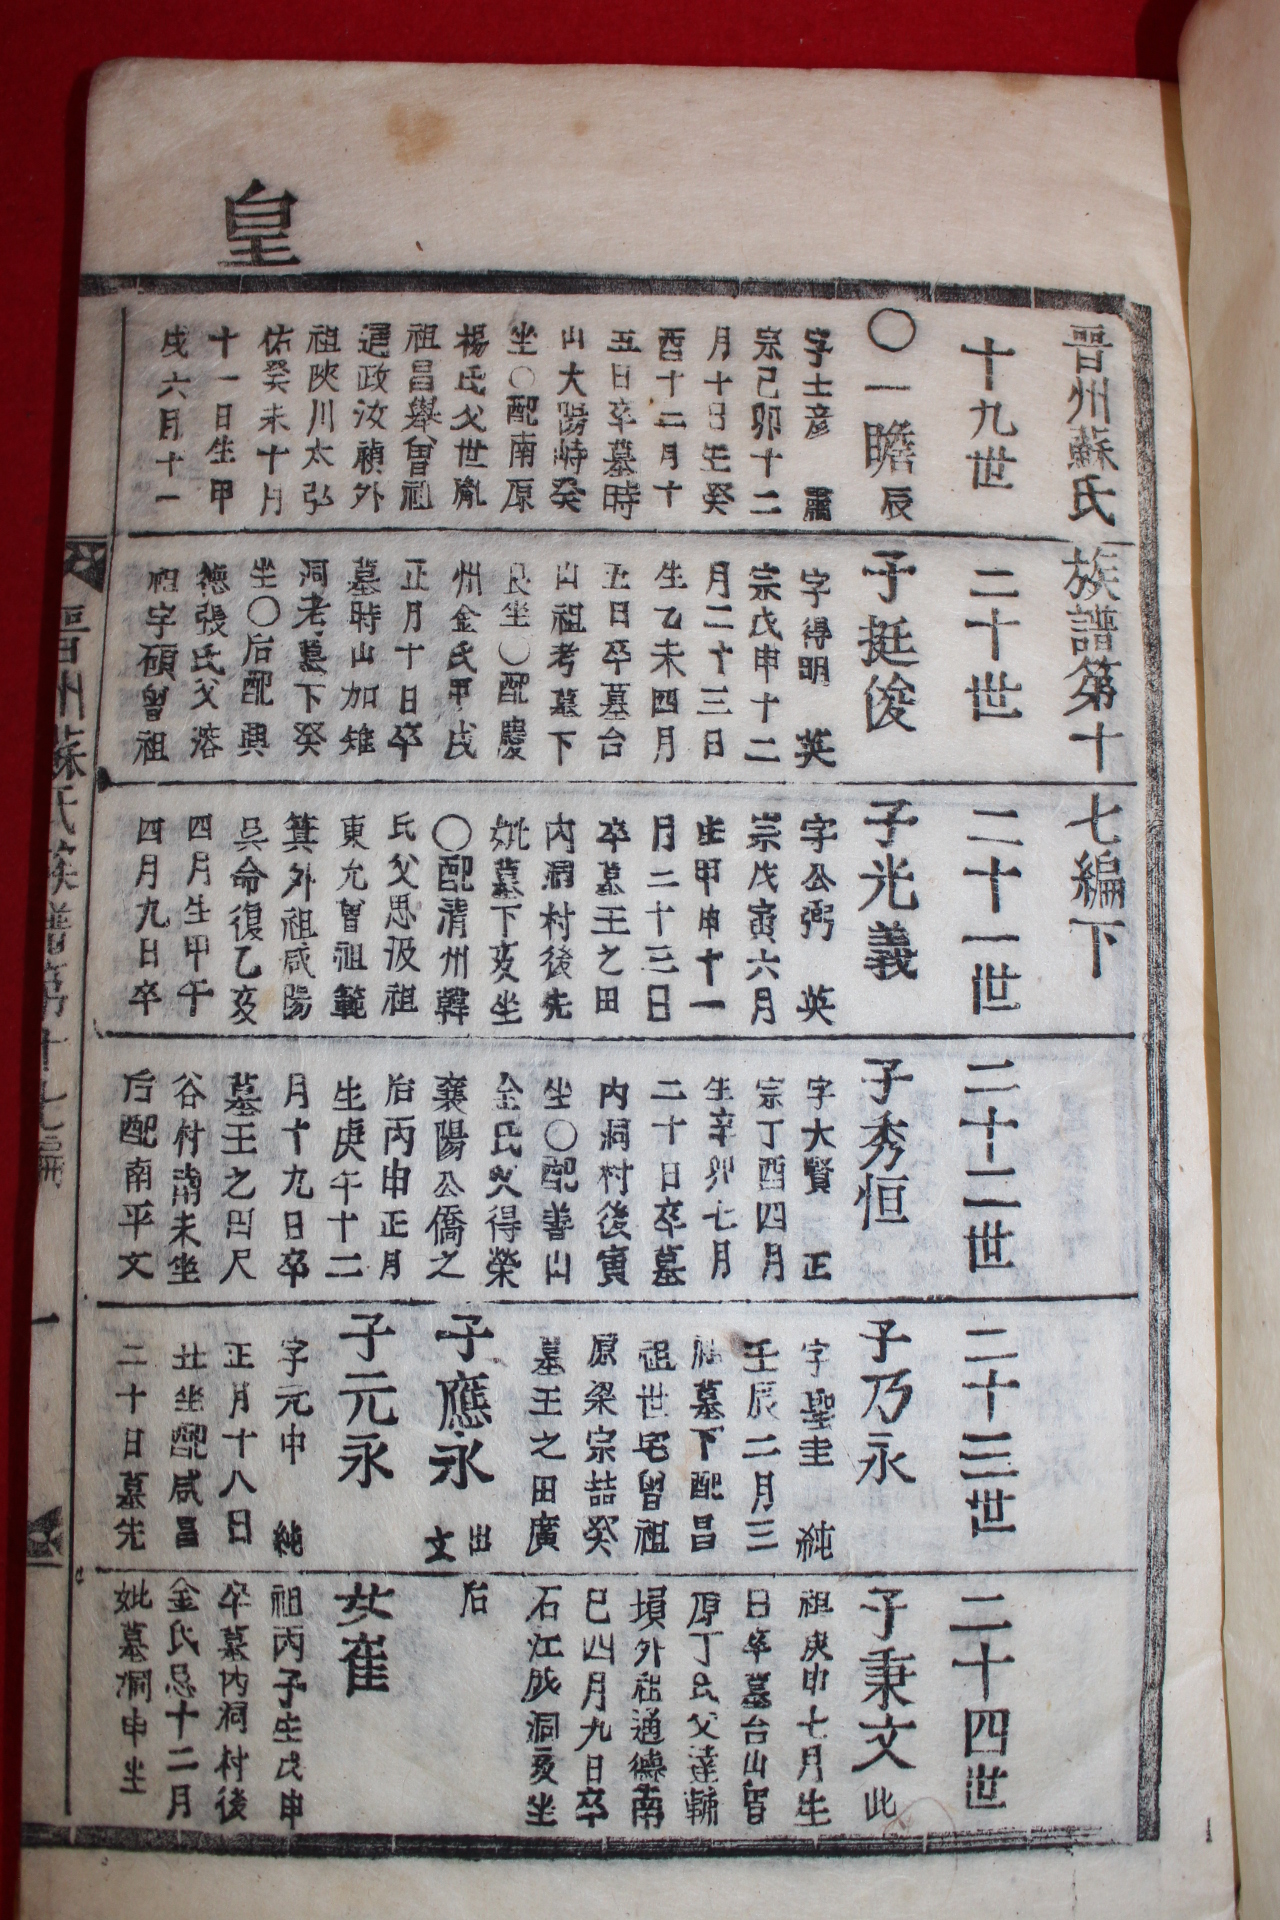 皇
晋州蘇氏族譜第十七編下
十九世
〇一瞻 辰
字士彦 肅
宗己卯十二
月十日生癸
酉十二月十
五日卒墓時
山大陽峙癸
坐〇配南原
楊氏父世胤
祖昌擧曾祖
通政汝禎外
祖陜川太弘
佑癸未十月
十一日生甲
戌六月十一
二十世
子挺俊
字得明 英
宗戊申十二
月二十三日
生乙未四月
五日卒墓台
山祖考墓下
艮坐〇配慶
州金氏甲戌
正月十日卒
墓時山加雉
洞老墓下癸
坐〇后配興
德張氏父溶
祖字碩曾祖
二十一世
子光義
字公弼 英
宗戊寅六月
生甲申十一
月二十三日
卒墓王之田
內洞村後先
妣墓下亥坐
〇配清州韓
氏父思汲祖
東允曾祖範
箕外祖咸陽
吳命復乙亥
四月生甲午
四月九日卒
二十二世
子秀恒
字大賢 正
宗丁酉四月
生辛卯七月
二十日卒墓
內洞村後寅
坐〇配善山
金氏父得榮
襄陽公僑之
后丙申正月
生庚午十二
月十九日卒
墓王之田尺
谷村南未坐
后配南平文
二十三世
子乃永
字聖圭 純
壬辰二月三
祖墓下配昌
祖世宅曾祖
原梁宗喆癸
墓王之田廣
子應永 出文
子元永
字元中 純
正月十八日
丑坐配咸昌
二十日墓先
二十四世
子秉文 此
祖庚申七月生
日卒墓台山曾
原丁氏父達輔
塤外祖通德南
巳四月九日卒
石江成洞亥坐
后
女崔
祖丙子生戊申
卒墓內洞村後
金氏忌十二月
妣墓洞申坐
晋州蘇氏族譜第十七編
一